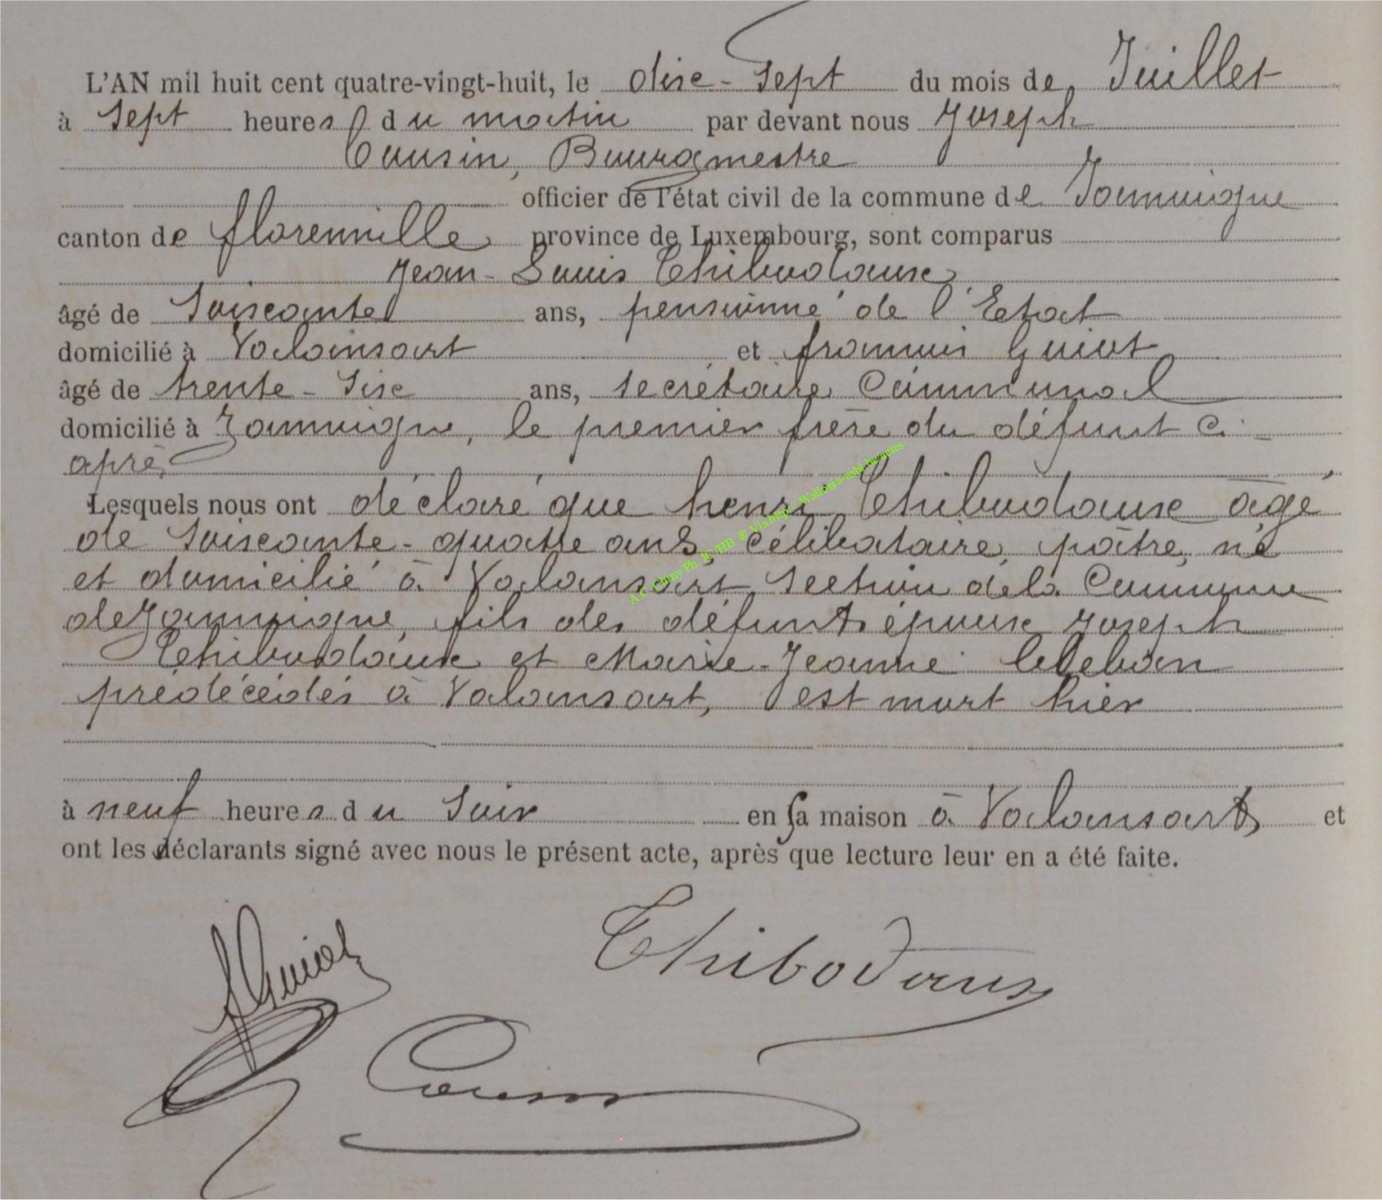 L'AN mil huit cent quatre-vingt-huit, le dix-sept du mois de Juillet
à sept heures du matin par devant nous Joseph
Cousin, Bourgmestre
officier de l'état civil de la commune de Jamoigne
canton de florenville province de Luxembourg, sont comparus
Jean-Louis Thibodaux
âgé de soixante ans, pensionné de l'Etat
domicilié à Valansart et françois Guiot
âgé de trente-six ans, secrétaire Communal
domicilié à Jamoigne, le premier frère du défunt ci-
après
Lesquels nous ont déclaré que henri Thibodaux âgé
de soixante-quatre ans célibataire, pâtre, né
et domicilié à Valansart section de la Commune
de Jamoigne, fils des défunts époux Joseph
Thibodaux et Marie-Jeanne
prédécédés à Valansart, est mort hier
à neuf heures du soir en sa maison à Valansart, et
ont les déclarants signé avec nous le présent acte, après que lecture leur en a été faite.
fGuiot Thibodaux
Cousin